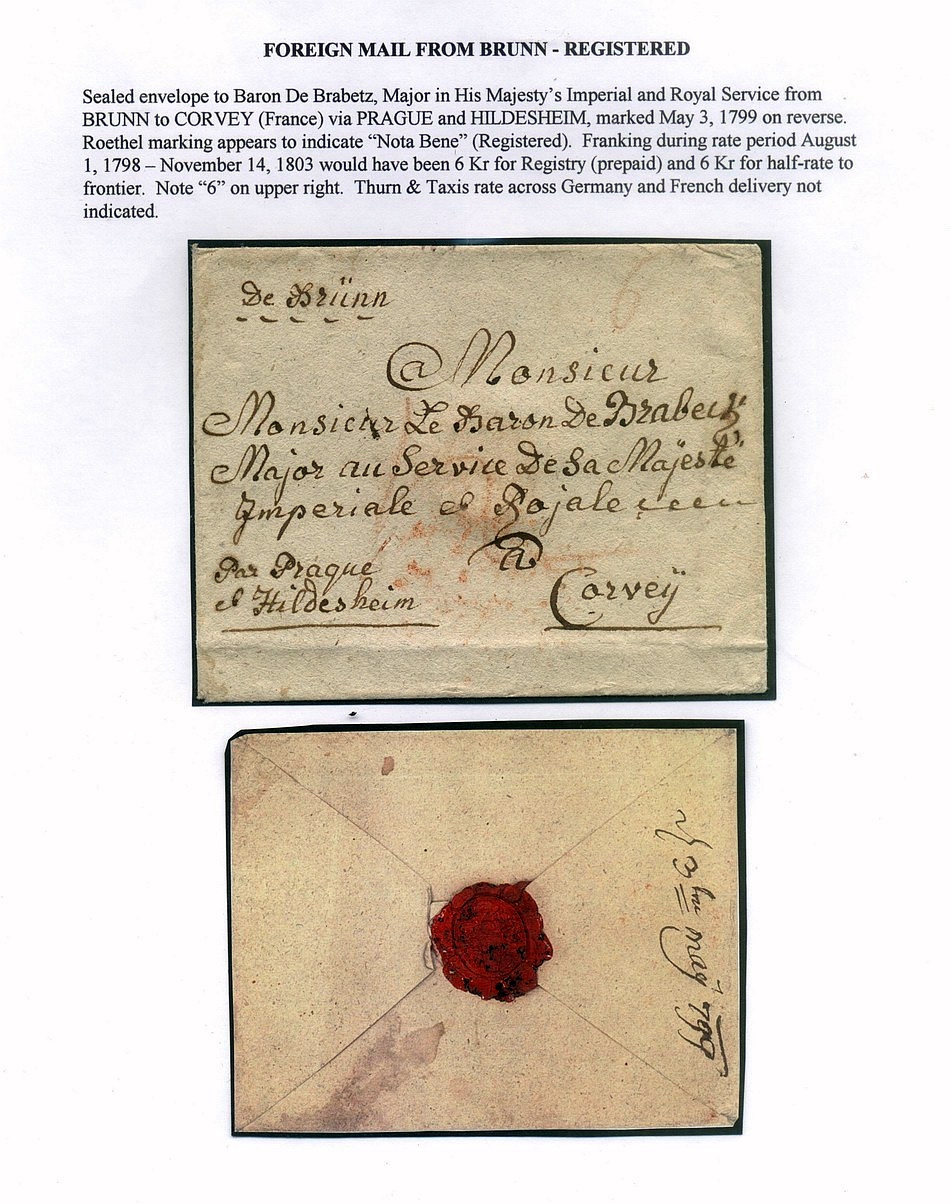 FOREIGN MAIL FROM BRUNN - REGISTERED
Sealed envelope to Baron De Brabetz, Major in His Majesty's Imperial and Royal Service from
BRUNN to CORVEY (France) via PRAGUE and HILDESHEIM, marked May 3, 1799 on reverse.
Roethel marking appears to indicate “Nota Bene” (Registered). Franking during rate period August
1, 1798 – November 14, 1803 would have been 6 Kr for Registry (prepaid) and 6 Kr for half-rate to
frontier. Note “6” on upper right. Thurn & Taxis rate across Germany and French delivery not
indicated.
De Brünn
6
a Monsieur
Monsieur Le Baron De Brabeck
Major au Service De Sa Majesté
Imperiale et Rojale
a
Corveÿ
Par Prague
et Hildesheim
3 may 799